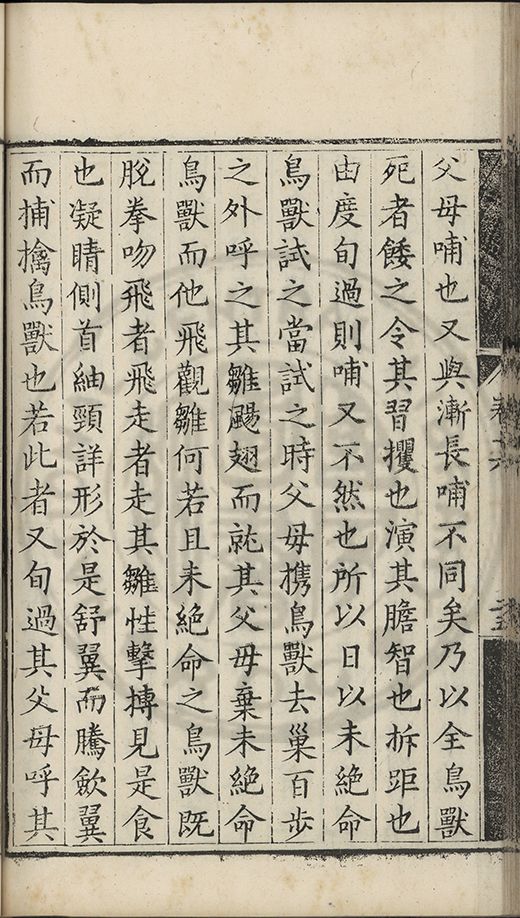 父母哺也又與漸長哺不同矣乃以全鳥獸
死者餧之令其習攫也演其膽智也拆距也
由度旬過則哺又不然也所以日以未絕命
鳥獸試之當試之時父母携鳥獸去巢百步
之外呼之其雛颺翅而就其父母棄未絕命
鳥獸而他飛觀雛何若且未絕命之鳥獸既
脫拳吻飛者飛走者走其雛性擊搏見是食
也凝睛側首紬頸詳形於是舒翼而騰歛翼
而捕擒鳥獸也若此者又旬過其父母呼其